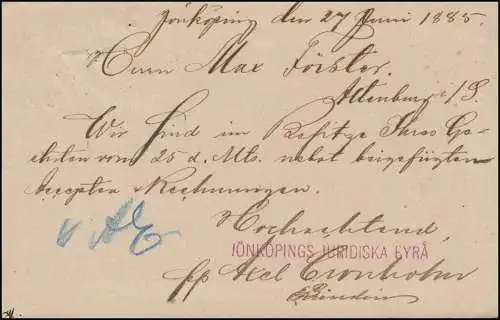 Jönköping den 27 Juni 1885.
Herrn Max Förster,
Altenburg i/S.
Wir sind im Besitze Ihres Ge-
ehrten vom 25 d. Mts. nebst beigefügten
Accepten & Rechnungen.
Hochachtend,
JÖNKÖPINGS JURIDISKA BYRÅ
pp Axel Cronholm